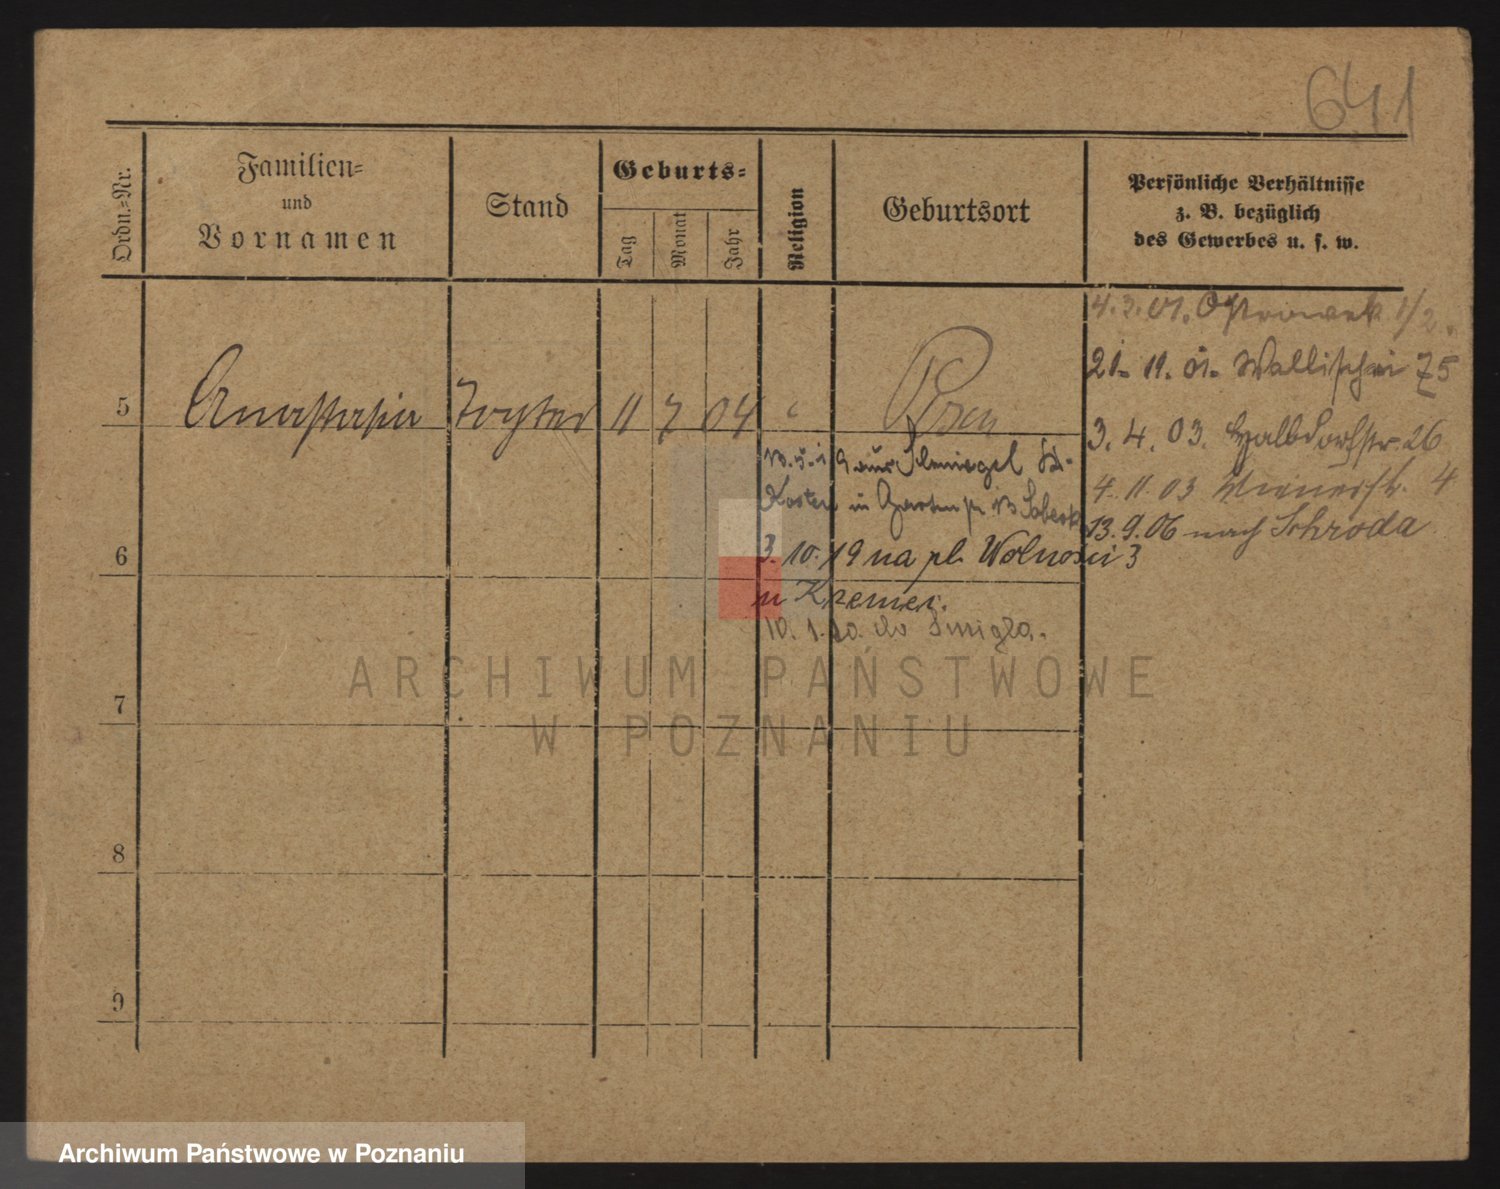 641
Ordn.-Nr.
Familien-
und
Vornamen
Stand
Geburts-
Tag
Monat
Jahr
Religion
Geburtsort
Persönliche Verhältnisse
z. B. bezüglich
des Gewerbes u. s. w.
4.3.01. Ostrowek 1/2.
21. 11. 01. Wallischei 75
5 Anastasia Tochter 11 7 04 c Posen
3. 4. 03. Halbdorfstr. 26
4. 11 03 Wienerstr. 4
13. 9. 06 nach Schroda
aus Schmiegel
Kosten in
6
3. 10. 19 na pl. Wolności 3
u Kremer.
10. 1. 20. do Śmigla.
ARCHIWUM PAŃSTWOWE
W POZNANIU
7
8
9
Archiwum Państwowe w Poznaniu